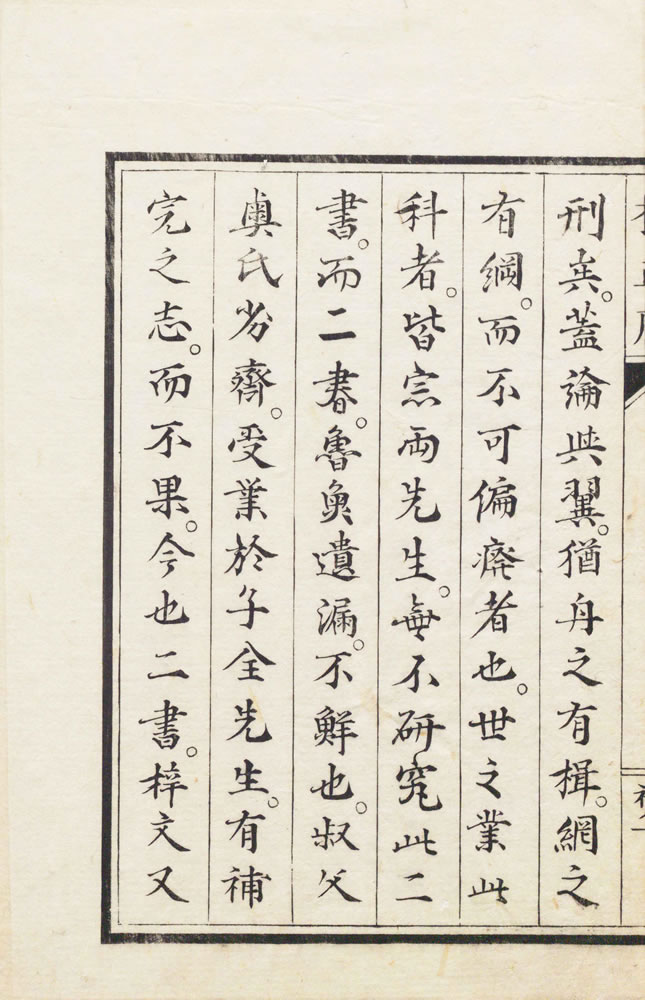 刑矣。蓋論與翼。猶舟之有楫。網之
有綱。而不可偏癈者也。世之業此
科者。皆宗兩先生。無不研究此二
書。而二書。魯魚遺漏。不鮮也。叔父
奧氏劣齋。受業於子全先生。有補
完之志。而不果。今也二書。梓文又